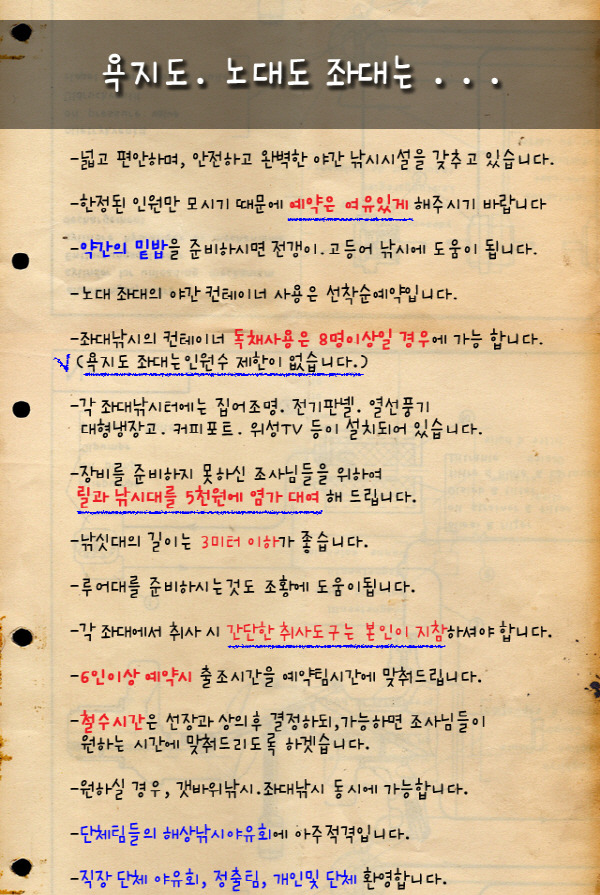 욕지도. 노대도 좌대는 . . .
-넓고 편안하며, 안전하고 완벽한 야간 낚시시설을 갖추고 있습니다.
-한정된 인원만 모시기 때문에 예약은 여유있게 해주시기 바랍니다
-약간의 밑밥을 준비하시면 전갱이.고등어 낚시에 도움이 됩니다.
-노대 좌대의 야간 컨테이너 사용은 선착순예약입니다.
-좌대낚시의 컨테이너 독채사용은 8명이상일 경우에 가능 합니다.
√ (욕지도 좌대는인원수 제한이 없습니다.)
-각 좌대낚시터에는 집어조명. 전기판넬. 열선풍기
대형냉장고. 커피포트. 위성TV 등이 설치되어 있습니다.
-장비를 준비하지 못하신 조사님들을 위하여
릴과 낚시대를 5천원에 염가 대여 해 드립니다.
-낚싯대의 길이는 3미터 이하가 좋습니다.
-루어대를 준비하시는것도 조황에 도움이됩니다.
-각 좌대에서 취사 시 간단한 취사도구는 본인이 지참하셔야 합니다.
-6인이상 예약시 출조시간을 예약팀시간에 맞춰드립니다.
-철수시간은 선장과 상의후 결정하되,가능하면 조사님들이
원하는 시간에 맞춰드리도록 하겟습니다.
-원하실 경우, 갯바위낚시.좌대낚시 동시에 가능합니다.
-단체팀들의 해상낚시야유회에 아주적격입니다.
-직장 단체 야유회, 정출팀, 개인및 단체 환영합니다.